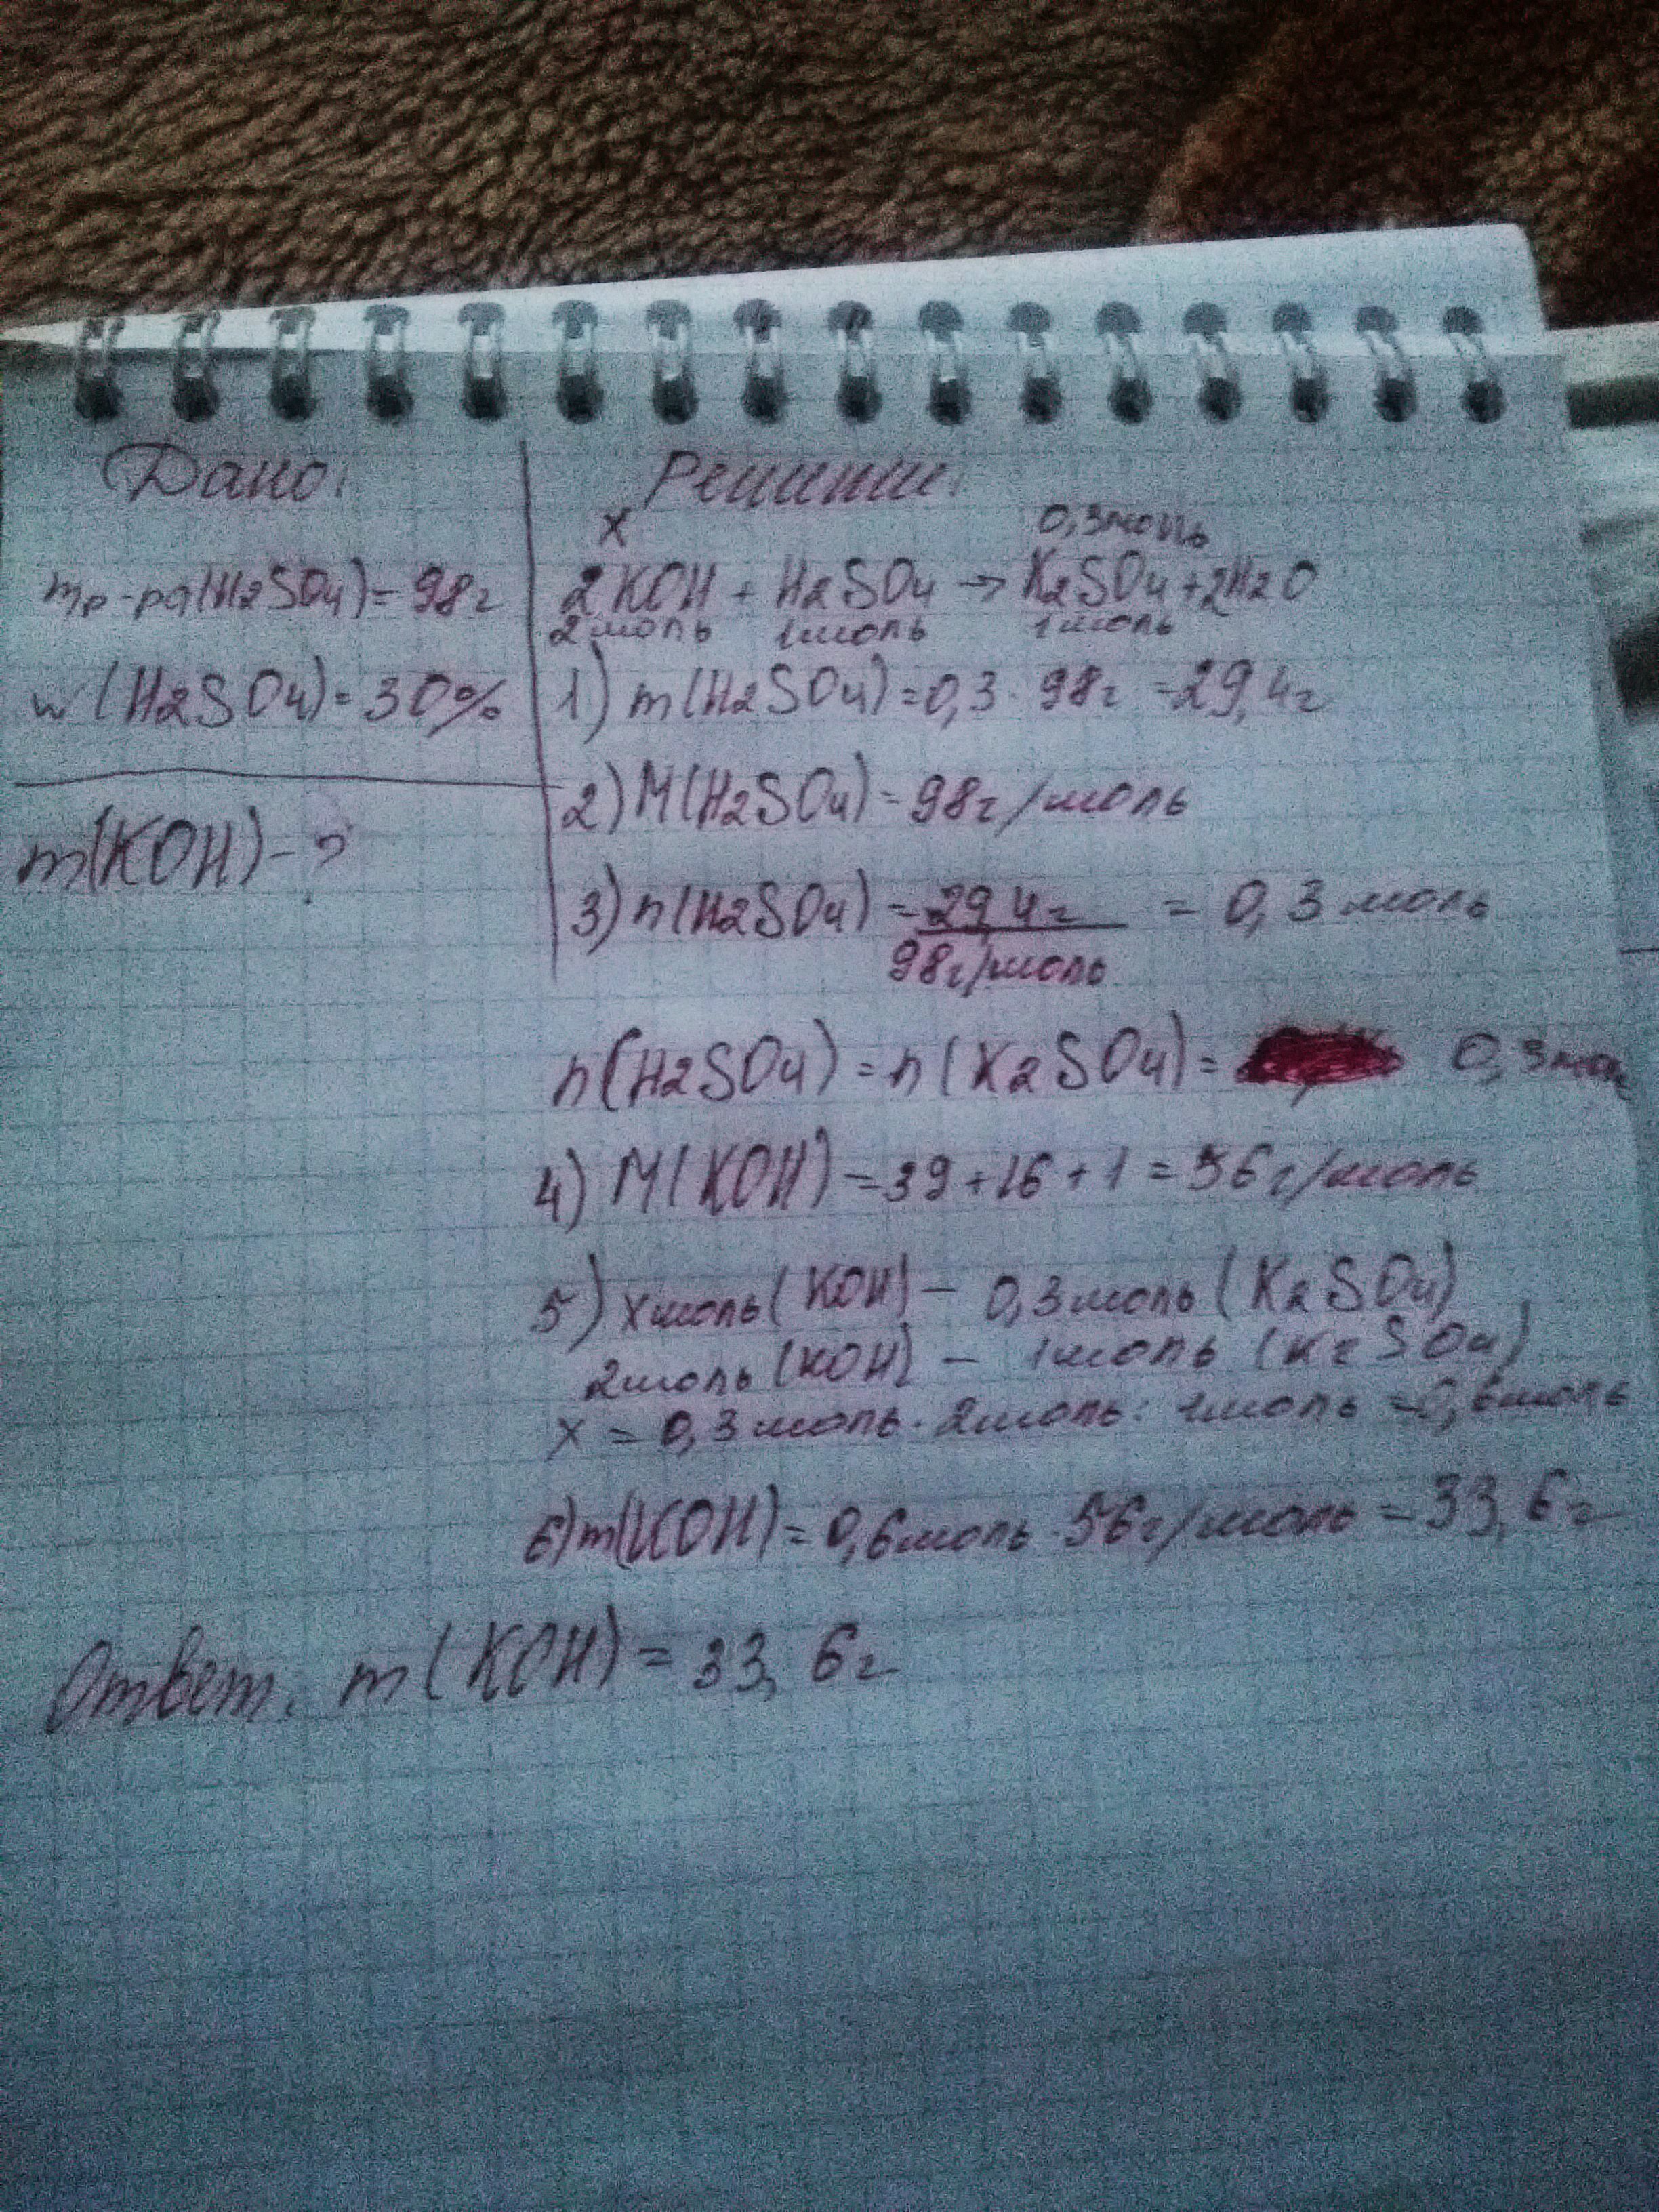 Дано:
mр-ра(H2SO4)=98г
w(H2SO4)=30%
m(KOH)-?
Решение:
x 0,3моль
2KOH + H2SO4 → K2SO4+2H2O
2моль 1моль 1моль
1) m(H2SO4)=0,3·98г=29,4г
2) M(H2SO4)=98г/моль
3) n(H2SO4)=29,4г = 0,3моль
98г/моль
n(H2SO4)=n(K2SO4)= 0,3мол
4) M(KOH)=39+16+1=56г/моль
5) xмоль(KOH) – 0,3моль(K2SO4)
2моль(KOH) – 1моль (K2SO4)
x = 0,3моль·2моль:1моль=0,6моль
6) m(KOH)=0,6моль·56г/моль=33,6г
Ответ: m(KOH)=33,6г